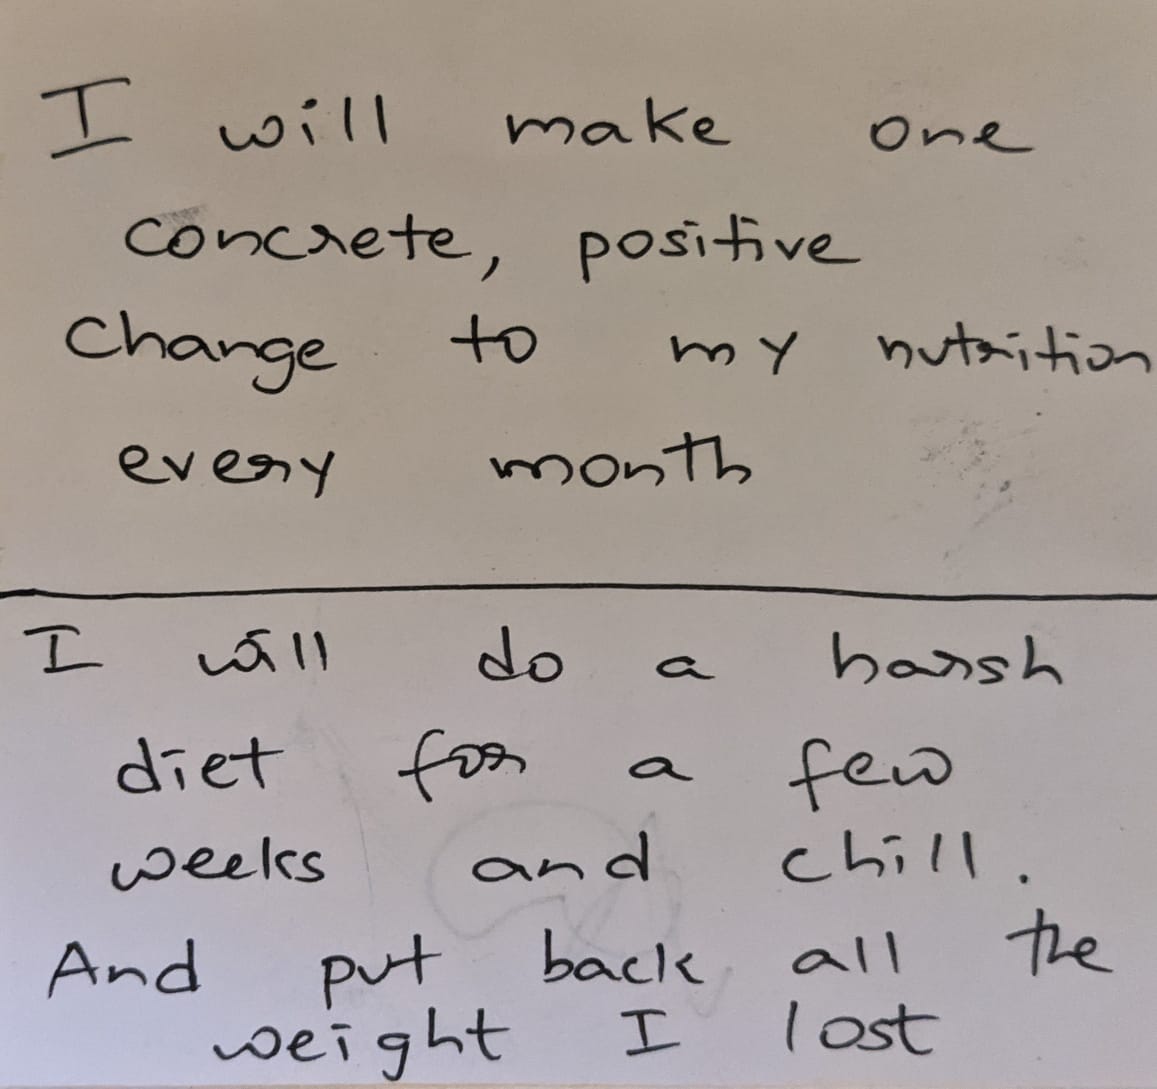 I will make one
concrete, positive
change to my nutrition
every month
I will do a harsh
diet for a few
weeks and chill.
And put back all the
weight I lost